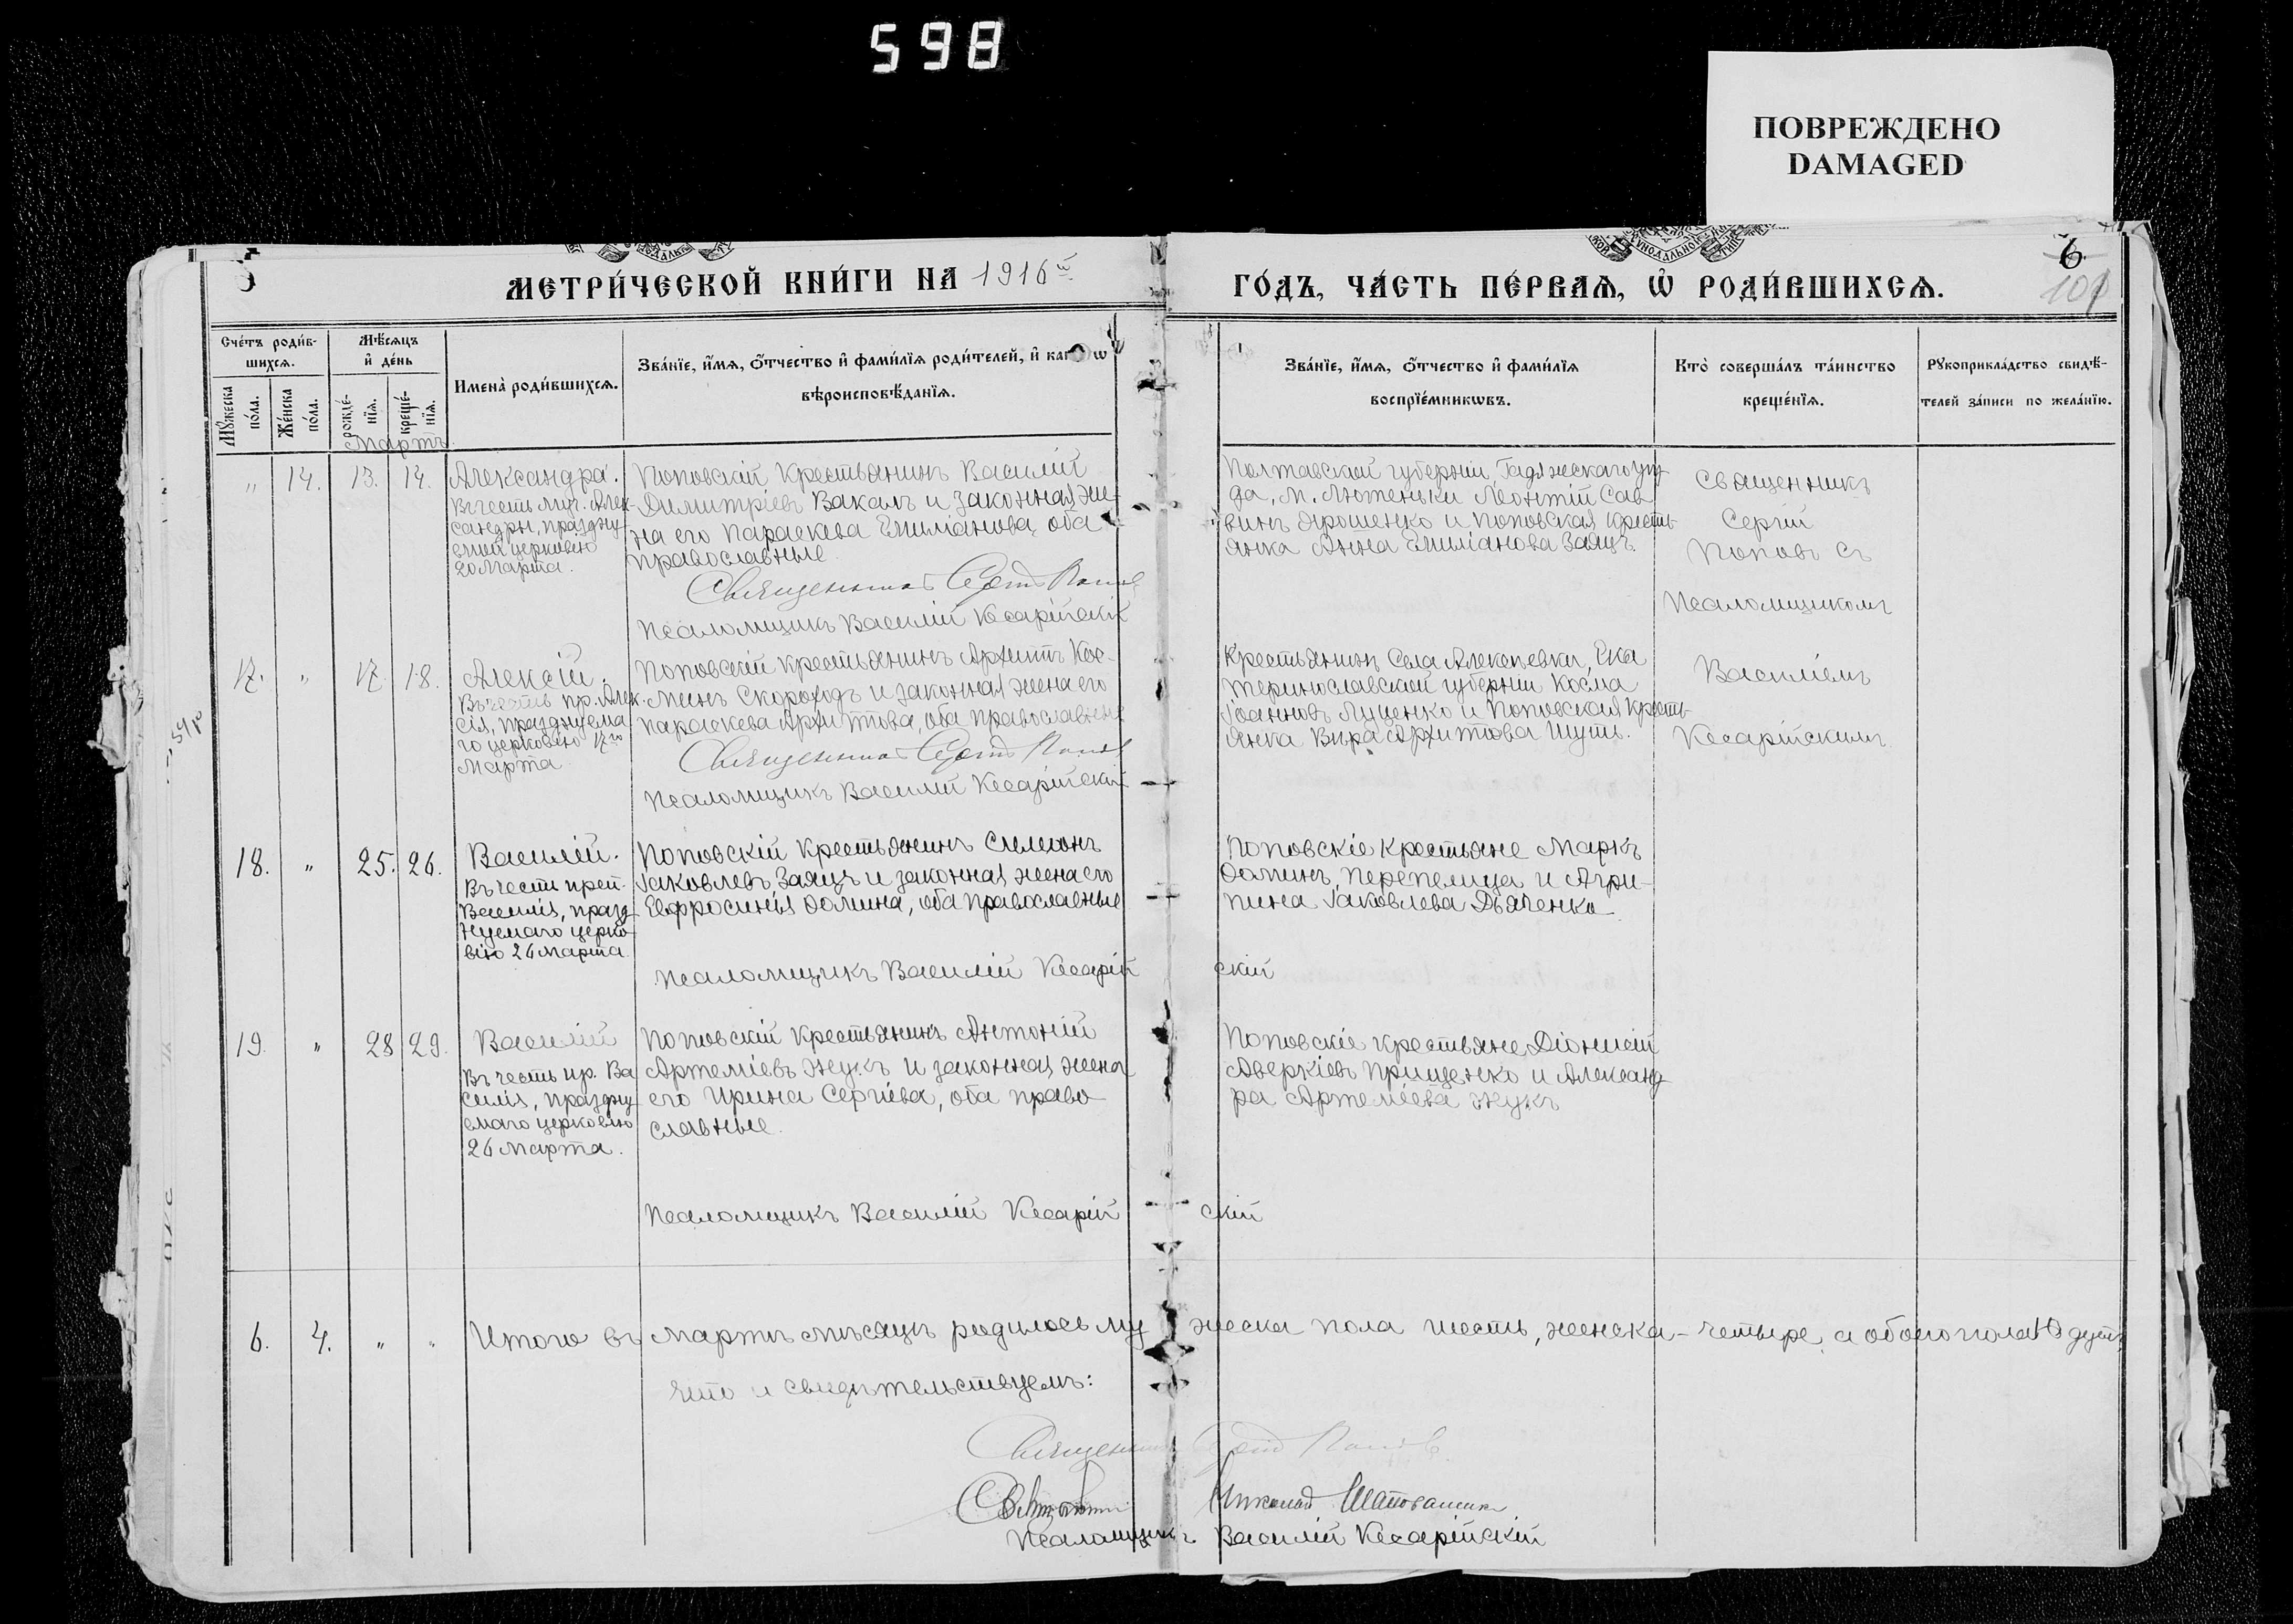 598
ПОВРЕЖДЕНО
DAMAGED
МЕТРИ́ЧЕСКОЙ КНИ́ГИ НА 1916й
ГО́ДЪ, ЧА́СТЬ ПЕ́РВАЯ, Ѿ РОДИ́ВШИХСЯ.
6.
101
Сче́тъ роди́в-
шихся.
Мꙋ́жеска по́ла.
Же́нска по́ла.
Мѣ́сяцъ
и де́нь
рожде́-нїя.
креще́-нїя.
Имена̀ роди́вшихся.
Зва́нїе, и́мя, о́тчество и фами́лїя роди́телей, и
вѣроисповѣ́данїя.
Зва́нїе, и́мя, о́тчество и фами́лїя
воспрїе́мникѡвъ.
Кто̀ соверша́лъ та́инство
креще́нїя.
Рꙋкоприкла́дство свидѣ́-
телей за́писи по жела́нїю.
Мартъ.
„ 14. 13. 14.
Александра.
Въ честь муч. Алек-
сандры, праздну-
емой церковію
20 Марта.
Поповскій крестьянинъ Василій
Димитріевъ Вакалъ и законная же-
на его Параскева Емиліанова, оба
православные.
Священникъ Сергій Поповъ
Псаломщикъ Василій Кесарійскій
Полтавской губерніи, Гадяческаго уѣз
да, м. Лютеньки Леонтій Сав
винъ Ярошенко и Поповская кресть
янка Анна Емиліанова Заяцъ.
Священникъ
Сергій
Поповъ съ
Псаломщикомъ
Василіемъ
Кесарійскимъ
17. „ 17. 18.
Алексій.
Въ честь пр. Алек
сія, празднуема
го церковію 17го
Марта
Поповскій крестьянинъ Архиппъ Кос-
минъ Скороходъ и законная жена его
Параскева Архиппова, оба православные
Священникъ Сергій Поповъ
Псаломщикъ Василій Кесарійскій
Крестьянинъ села Алексѣевки, Ека
теринославской губерніи Косма
Іоанновъ Луценко и Поповская кресть-
янка Вѣра Архиппова Шуть.
18. „ 25. 26.
Василій.
Въ честь преп.
Василія, празд
нуемаго церко
вію 26 марта.
Поповскій крестьянинъ Симеонъ
Іаковлевъ Заяцъ и законная жена его
Евфросинія Ѳомина, оба православные
Псаломщикъ Василій Кесарій скій
Поповскіе крестьяне Маркъ
Ѳоминъ Перепелица и Агри-
пина Іаковлева Дьяченко
19. „ 28 29.
Василій
Въ честь пр. Ва
силія, праздну
емаго церковію
26 Марта.
Поповскій крестьянинъ Антоній
Артеміевъ Жукъ и законная жена
его Ирина Сергіева, оба право
славные.
Псаломщикъ Василій Кесарій скій
Поповскіе крестьяне Діонисій
Аверкіевъ Прищенко и Александ
ра Артеміева Жукъ
6. 4. „ „ Итого въ мартѣ мѣсяцѣ родилось му жеска пола шесть, женска - четыре, а обоего пола 10 душъ,
что и свидѣтельствуемъ:
Священникъ Сергій Поповъ
Николай
Псаломщикъ Василій Кесарійскій